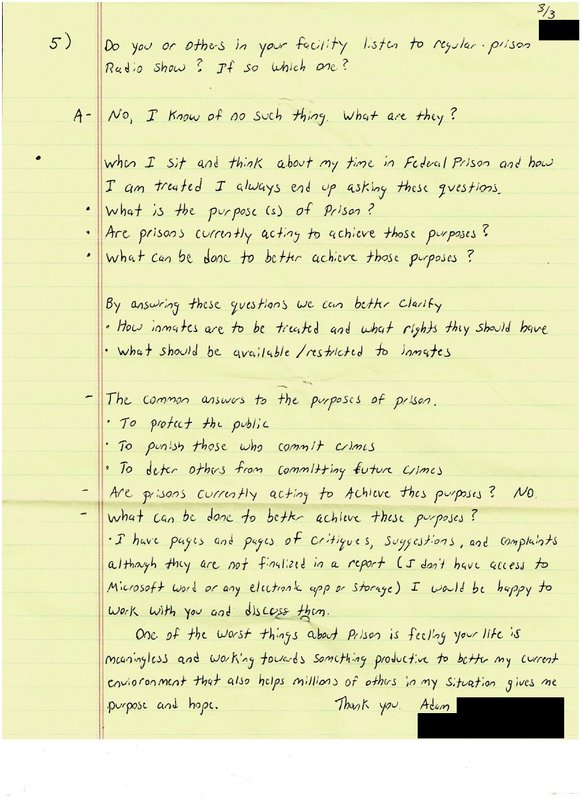 3/3
5) Do you or others in your facility listen to regular prison
Radio show? If so which one?
A- No, I know of no such thing. What are they?
• when I sit and think about my time in Federal Prison and how
I am treated I always end up asking these questions.
• What is the purpose(s) of Prison?
• Are prisons currently acting to achieve those purposes?
• What can be done to better achieve those purposes?
By answering these questions we can better Clarify
• How inmates are to be treated and what rights they should have
• What should be available/restricted to inmates
- The common answers to the purposes of prison.
• To protect the public
• To punish those who commit crimes
• To deter others from committing future crimes
- Are prisons currently acting to Achieve thes purposes? No.
- What can be done to better achieve these purposes?
• I have pages and pages of critiques, suggestions, and complaints
although they are not finalized in a report (I don't have access to
Microsoft word or any electronic app or storage) I would be happy to
work with you and discuss them.
One of the worst things about Prison is feeling your life is
meaningless and working towards something productive to better my current
envioronment that also helps millions of others in my situation gives me
purpose and hope. Thank you. Adam